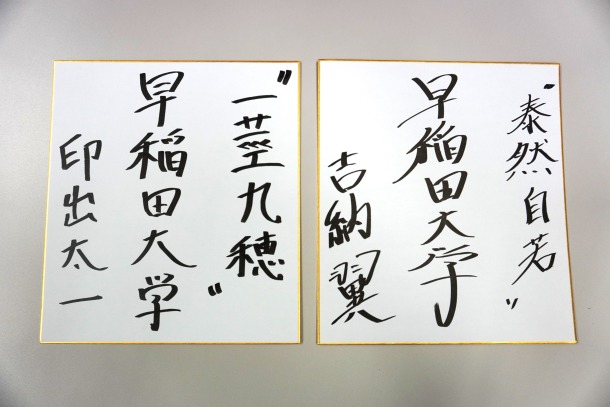 "泰然自若"
早稲田大学
吉納翼
"一茎九穂"
早稲田大学
印出太一